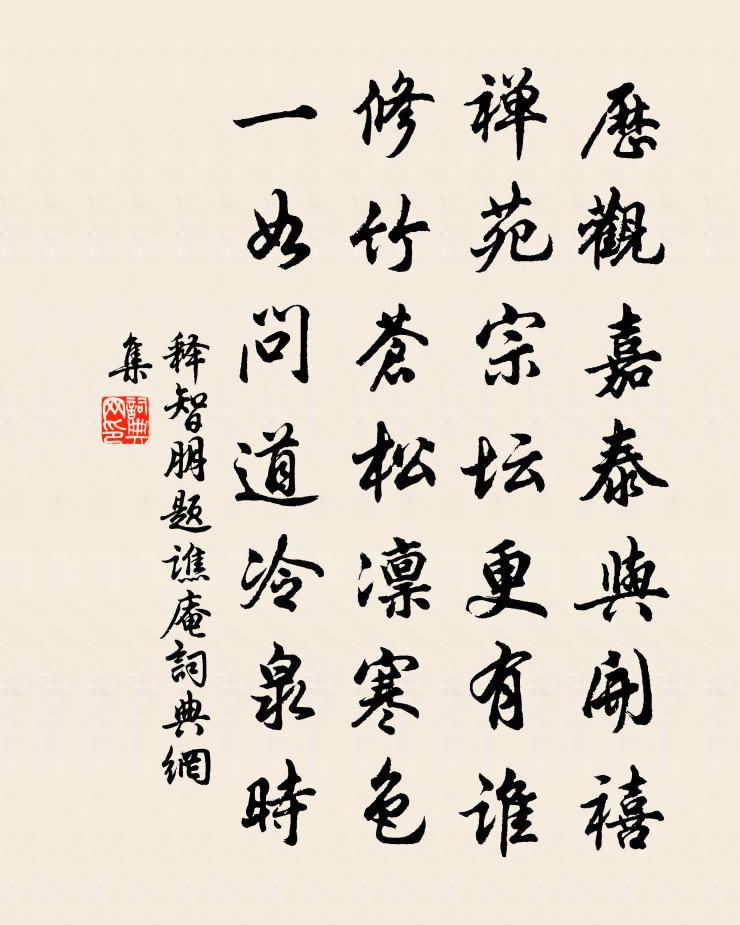 歷觀嘉泰與開禧
禅苑宗坛更有谁
修竹蒼松凛寒色
一如问道冷泉時
释智朋题谯庵詞典網
集
詞典
网印